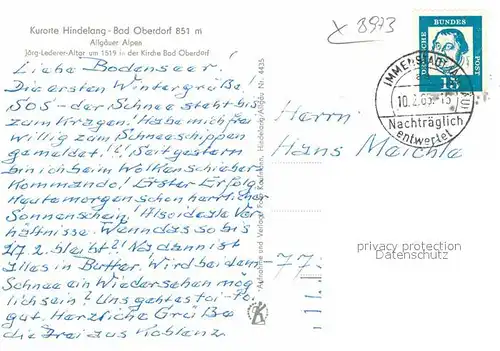 Kurorte Hindelang - Bad Oberdorf 851 m
Allgäuer Alpen
Jörg-Lederer-Altar um 1519 in der Kirche Bad Oberdorf
Liebe Bodenseer!
Die ersten Wintergrüße!
SOS - der Schnee steht bis
zum Kragen! Habe mich frei
willig zum Schneeschippen
gemeldet!! Seit gestern
bin ich beim Wolkenschieber
Kommando! Erster Erfolg
Heute morgen schon herrlicher
Sonnenschein! Also ideale Ver
hältnisse. Wenn das so bis
27.2. bleibt?! Na dann ist
alles in Butter. Wird bei dem
Schnee ein Wiedersehen mög
lich sein? Uns geht es toi-
gut. Herzliche Grüße
die Drei aus Koblenz
Aufnahme und Verlag: Foto Kaufmann, Hindelang/Allgäu Nr. 4435
K
x 8973
DEUTSCHE BUNDESPOST
15
IMMENSTADT
10.2.63-15
Nachträglich
entwertet
Herrn
Hans Maichle
-77-
privacy protection
Datenschutz